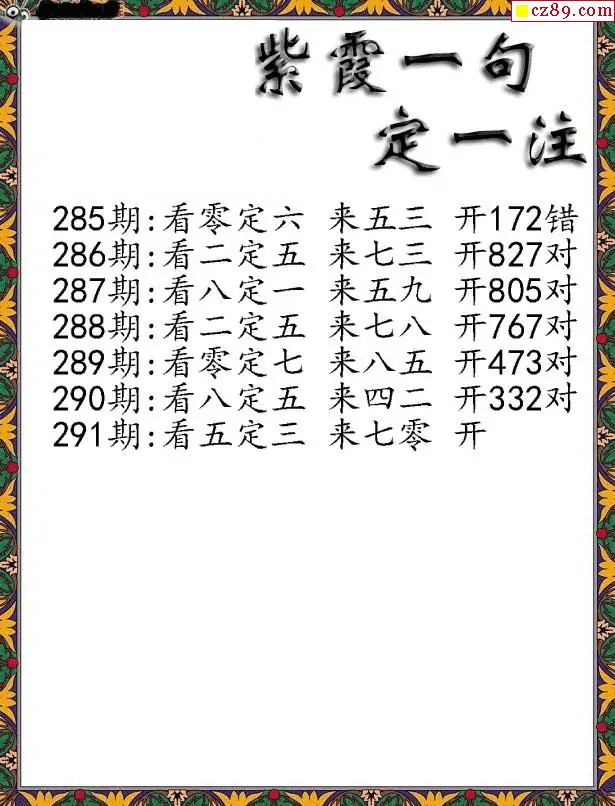 cz89.com
紫霞一句
定一注
285期:看零定六 来五三 开172错
286期:看二定五 来七三 开827对
287期:看八定一 来五九 开805对
288期:看二定五 来七八 开767对
289期:看零定七 来八五 开473对
290期:看八定五 来四二 开332对
291期:看五定三 来七零 开